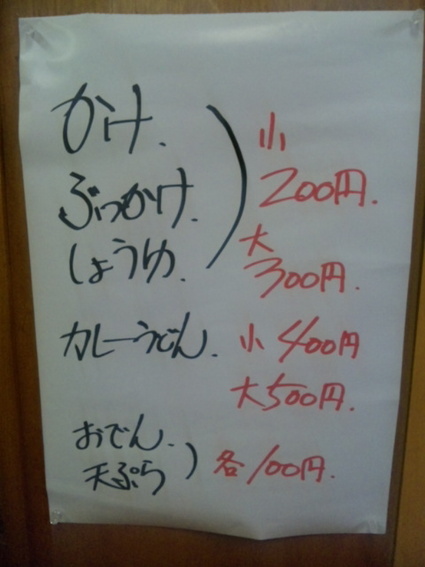 かけ.
ぶっかけ.
しょうゆ.
小
200円.
大
300円.
カレーうどん. 小 400円
大 500円.
おでん.
天ぷら
各100円.